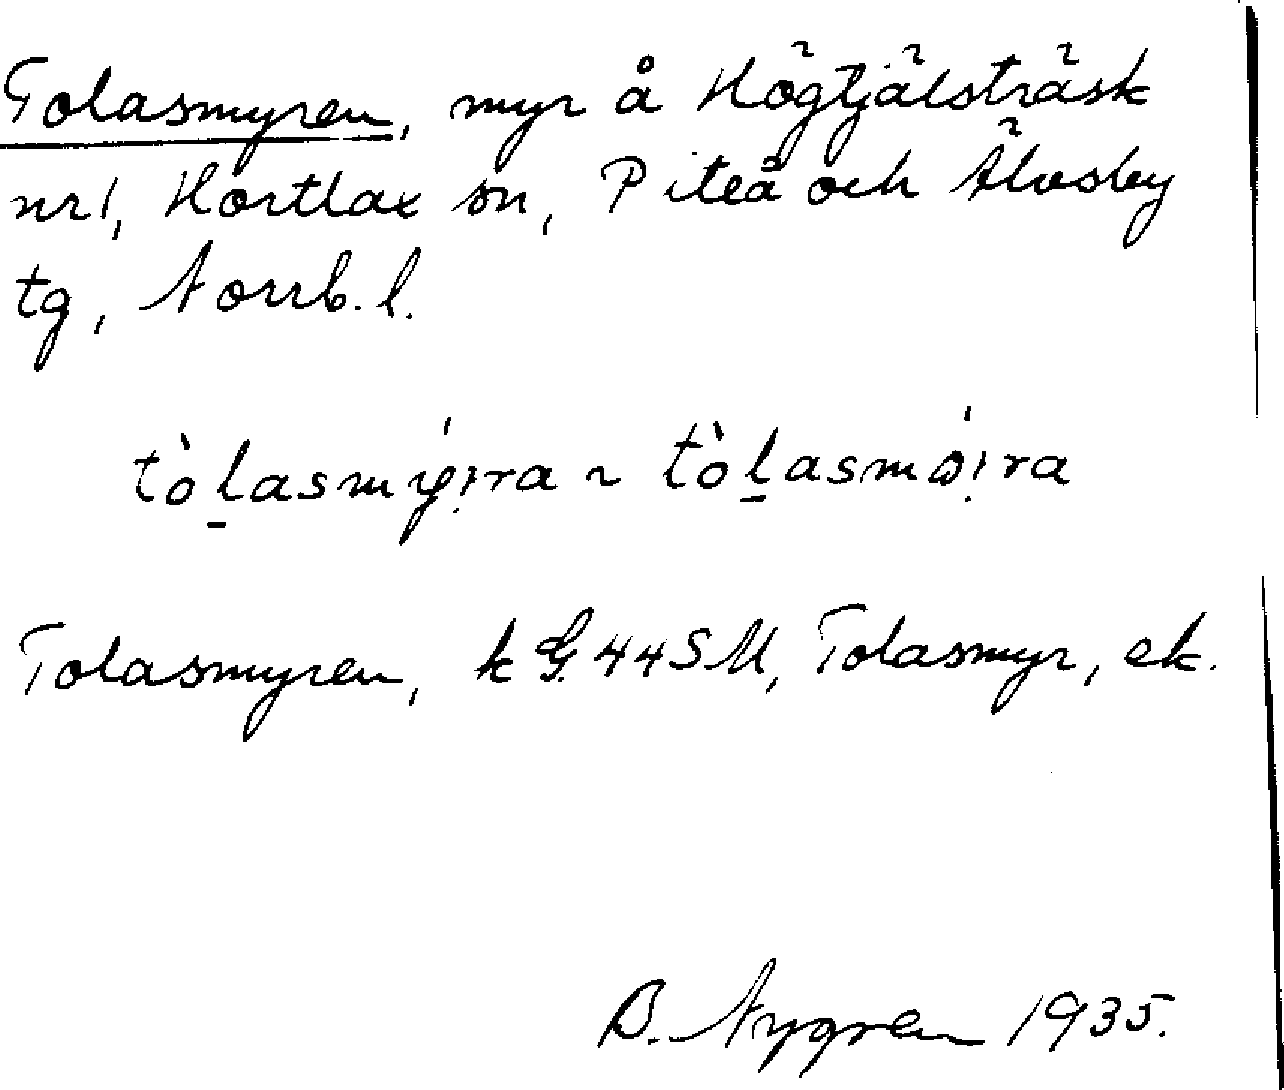 Tolasmyren, myr å Högtjälsträsk
nr 1, Hortlax sn, Piteå och Älvsby
tg, Norrb. l.
tò̀l̠asmýịra ~ tò̀l̠asmóịra
Tolasmyren, k G. 44 SM, Tolasmyr, ek.
B. Nygren 1935.